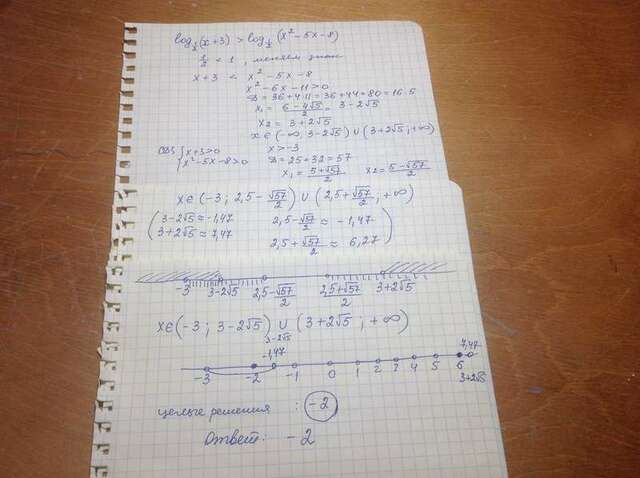 log½(x+3) > log½(x²-5x-8)
½ < 1, меняем знак
x+3 < x²-5x-8
x²-6x-11>0
D=36+4·11=36+44=80=16·5
x₁ = (6-4√5)/2 = 3-2√5
x₂ = 3+2√5
x∈(-∞; 3-2√5)∪(3+2√5; +∞)
ОДЗ {x+3>0 x>-3
{x²-5x-8>0 D=25+32=57
x₁=(5+√57)/2 x₂=(5-√57)/2
x∈(-3; 2,5-√57/2)∪(2,5+√57/2; +∞)
(3-2√5≈-1,47 2,5-√57/2≈-1,47)
(3+2√5≈7,47 2,5+√57/2≈6,27)
-3 3-2√5 2,5-√57/2 2,5+√57/2 3+2√5
x∈(-3; 3-2√5)∪(3+2√5; +∞)
3-2√5
-1,47 7,47
-3 -2 -1 0 1 2 3 4 5 6
3+2√5
целые решения : -2
Ответ: -2